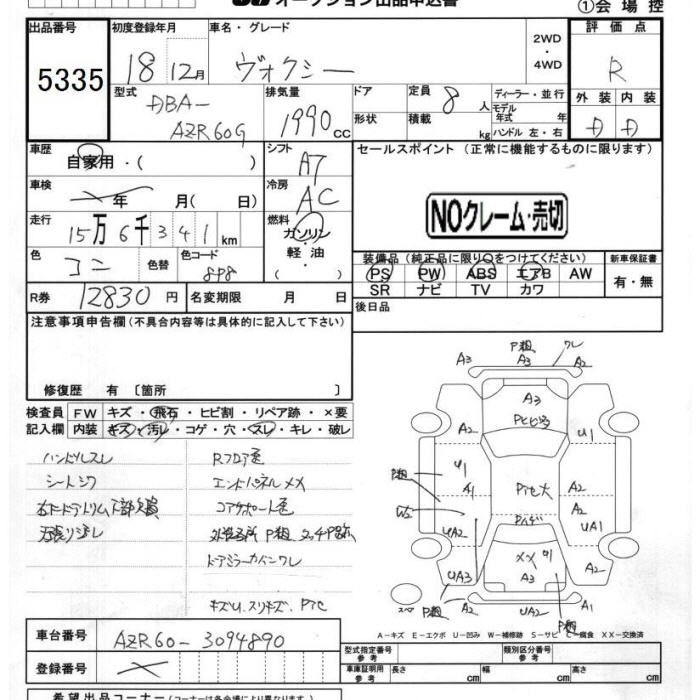 オークション出品申込書
①会場控
出品番号 5335
初度登録年月 18 12月
車名・グレード ヴォクシー
2WD・4WD
評価点 R
外装 内装
D D
型式 DBA-AZR60G
排気量 1990cc
ドア
形状
定員 8人
積載 kg
ディーラー・並行
モデル年式 年式
ハンドル 左・右
車歴 自家用・( )
シフト AT
セールスポイント (正常に機能するものに限ります)
車検 年 月( 日)
冷房 AC
NOクレーム・売切
走行 15万6千341km
燃料 ガソリン・軽・油
色 コン 色替 色コード 8P8
装備品 (純正品に限り○をつけてください)
新車保証書
PS PW ABS エアB AW
有・無
SR ナビ TV カワ
R券 12830円 名変期限 月 日
後日品
注意事項申告欄(不具合内容等は具体的に記入して下さい)
修復歴 有〔箇所 〕
検査員記入欄
FW キズ・飛石・ヒビ割・リペア跡・×要
内装 キズ・汚レ・コゲ・穴・スレ・キレ・破レ
ハンドルスレ
シートシワ
Rフロア色
エンドパネルメメ
コアサポート色
ドアミラーカインワレ
キズU.スリキズ. Ptc
P粗 ワレ
A3 A3 A2
A3
A2 U1
P粗
A1 A2
W2 A2
UA2 UA1
XX
A3
UA3 A2
スペア P粗 UA2 A1
P粗
A-キズ E-エクボ U-凹み W-補修跡 S-サビ C-腐食 XX-交換済
車台番号 AZR60-3094890
登録番号
型式指定番号 参考
類別区分番号 参考
車庫証明用参考 長さ cm 幅 cm 高さ cm
希望出品コーナー(コーナーは各会場により異なります。)